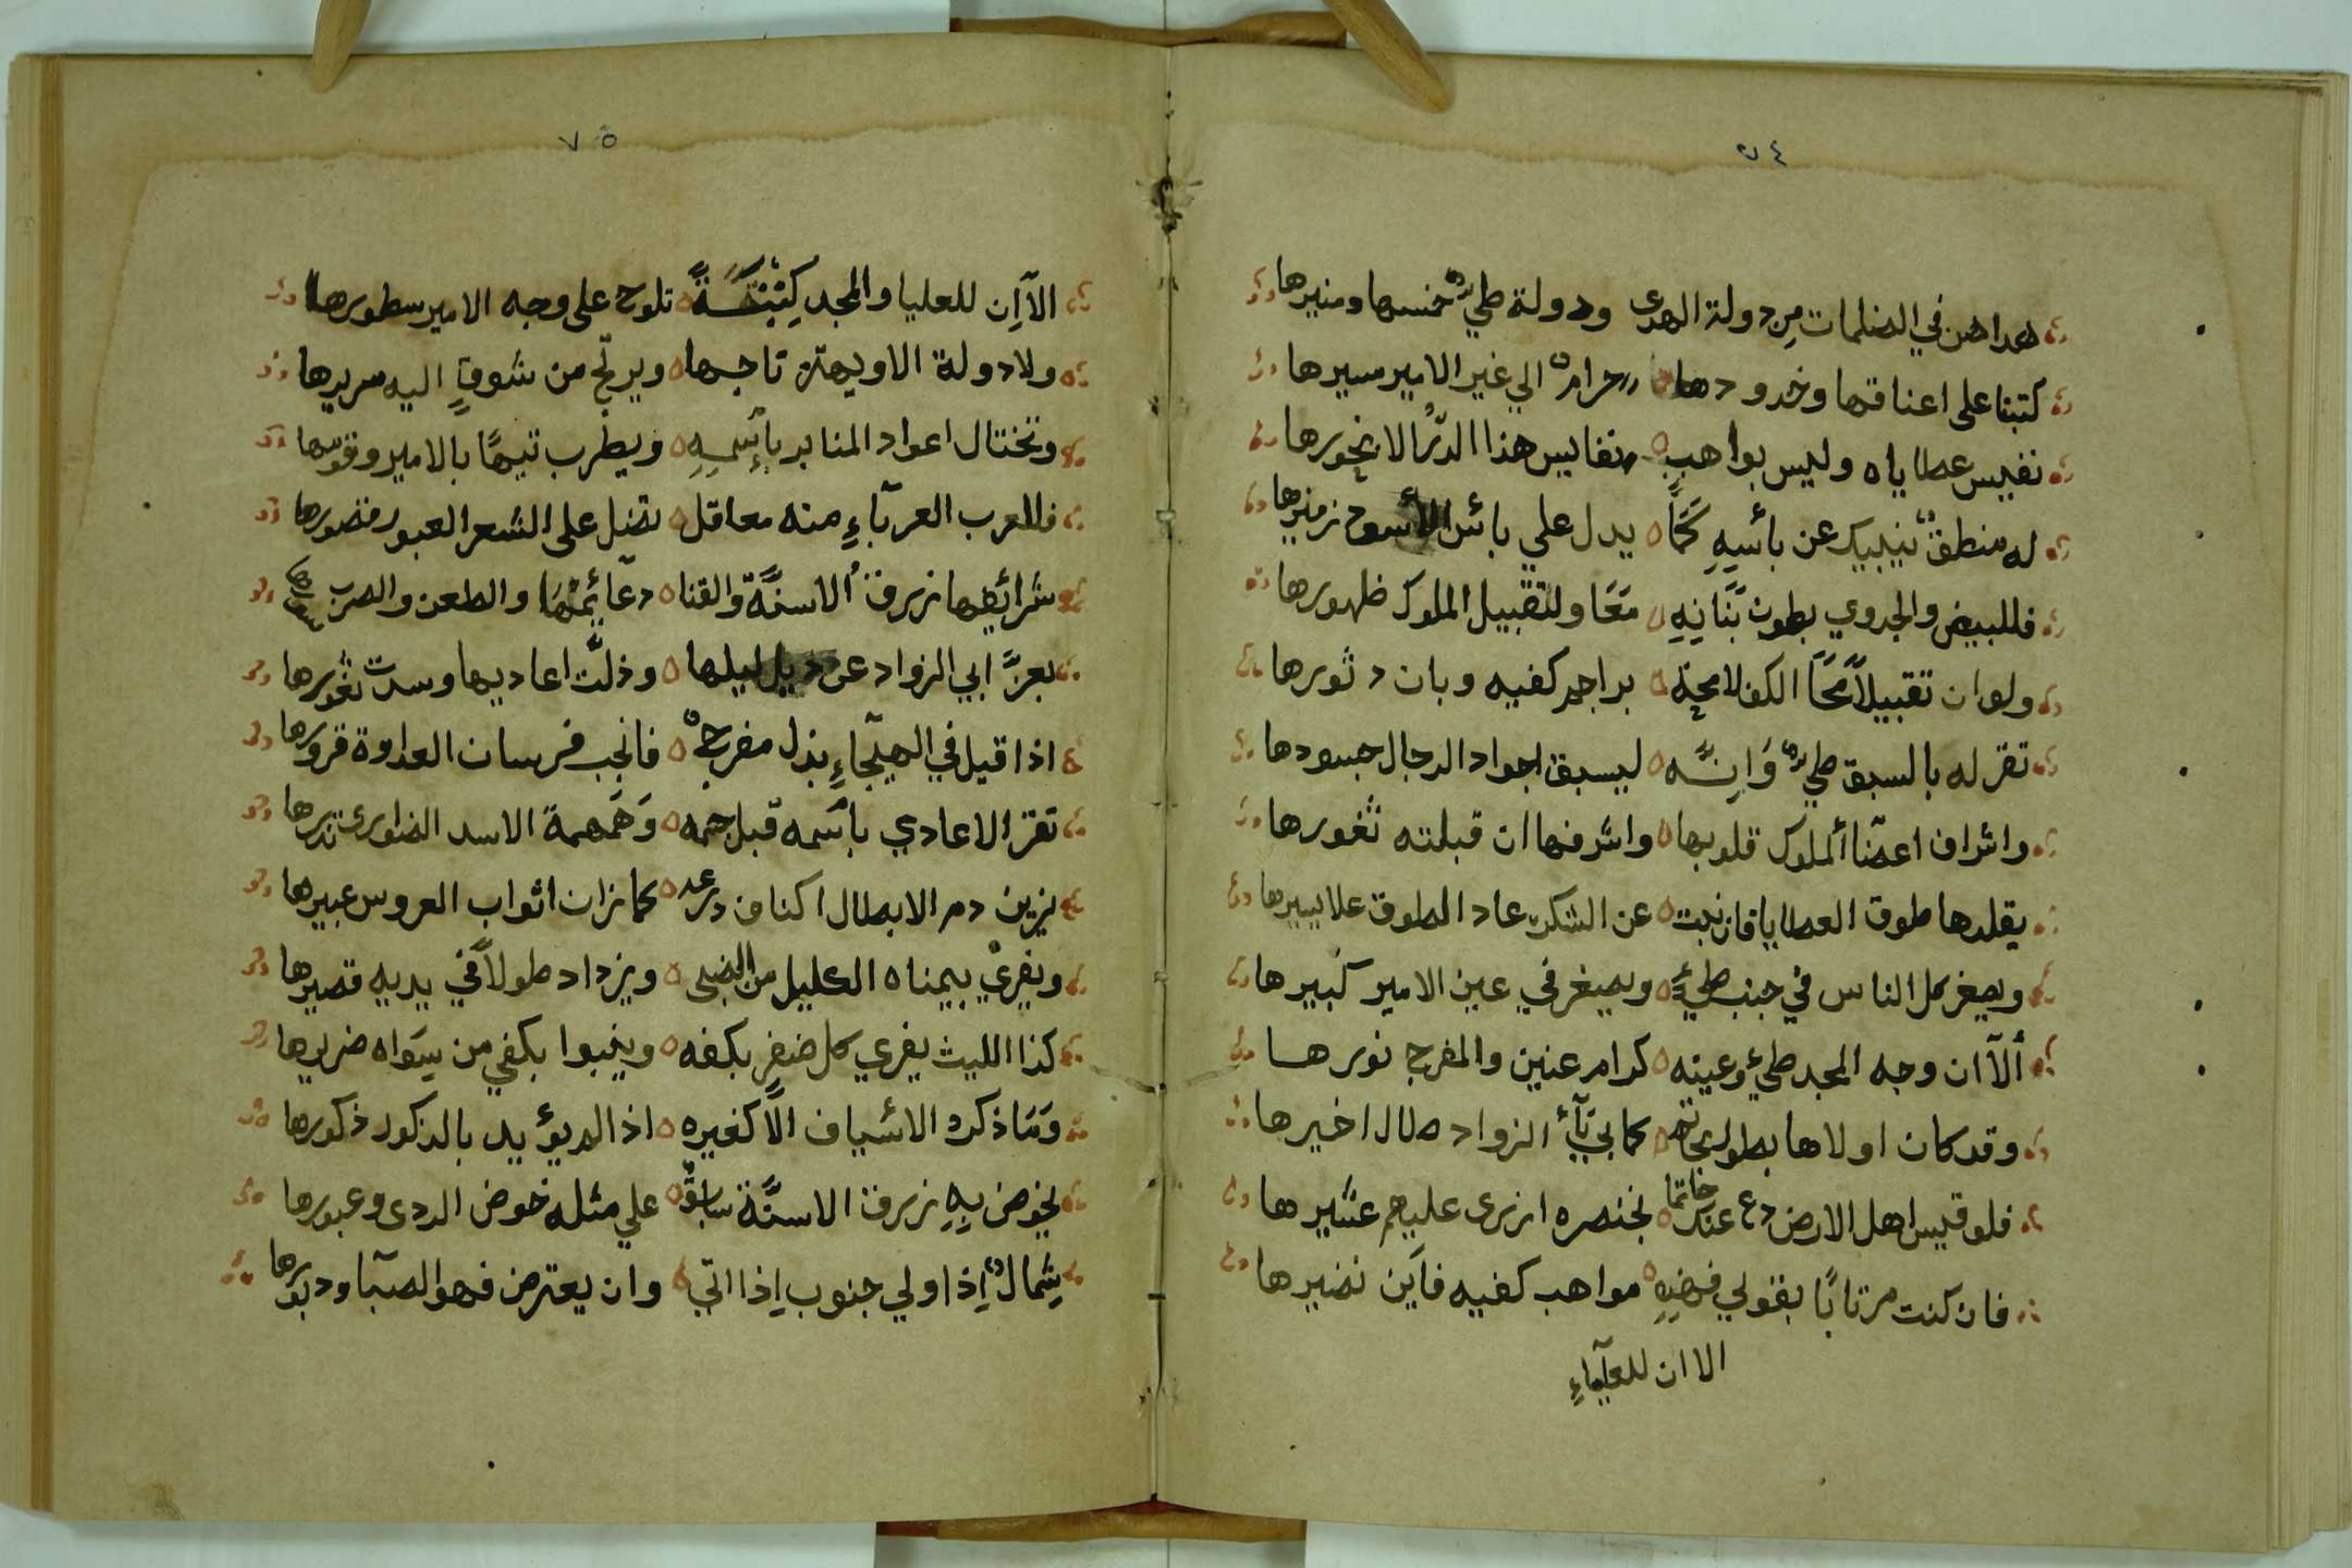 ٧٤
هداهن في الضلمات من دولة الهدى ودولة طيٍ شمسها ومنيرها
كتبنا على اعناقها وخدودها حرامٌ الي غير الامير مسيرها
نفيس عطاياه وليس بواهب نفايس هذا الدرُّ الا نحورها
له منطقٌ ينبيك عن بائسهِ كَمَا يدل علي بائس الأسود زميرها
فللبيض والجدوي بطون بَنَانِهِ مَعَا ولتقبيل الملوك ظهورها
ولو ان تقبيلاً مَحَا الكف لامحت براجم كفيه وبان دثورها
تقر له بالسبق طيٌ وَاِنَّه ليسبق اجواد الرجال جسودها
واشراف اعضَا ألملوك قلوبها واشرفها ان قبلته ثغورها
يقلدها طوق العطايا فان نبت عن الشكر عاد الطوق علا يبيرها
ويصغر كل الناس في جنب طيءٍ ويصغر في عين الامير كبيرها
ألآ ان وجه المجد طيءٌ وعينه كرام عنين والمفرج نورها
وقد كان اولاها يطول كما بي الزواد طال اخيرها
فلو قيس اهل الارض دع عنك خاتما بخنصره ازرى عليهم عشيرها
فان كنت مرتابًا بقولي فهذِهِ مواهب كفيه فاَين نضيرها
الا ان للعلياءِ
٧٥
الآ اِن للعليا والمجد كِتْبَةً تلوح على وجه الامير سطورها
ولا دولة الا ويهتز تاجها ويرتجّ من شوقٍ اليه سريرها
وتختال اعواد المنابر بإسمِهِ ويطرب تيهًا بالامير وقورها
فللعرب العربآءِ منه معاقل تضل على الشعر العبور قصورها
شرائفها زرق الاسنَّة والقنا دعَائمُهَا والطعن والضرب سورها
بعزَّ ابي الزواد عن ذيل ليلها وذلّت اعاديها وسدت ثغورها
اذا قيل في الهيجَاءِ بذل مفرجٌ فانجب فرسان العداوة قرورها
تفز الاعادي باسمه قبل جمه وَهَمهمة الاسد الضواري تذيرها
يزين دم الابطال اكناف درعه كما زان اثواب العروس عبيرها
ويفريْ بيمناه الكليل من الضبى ويزداد طولاً في يديه قصيرها
كذا الليث يفري كل ضفرٍ بكفه وينبوا بكفي من سِوَاه ضريرها
وَمَا ذكره الاسياف الاّ كغيره اذ الم يؤيد بالذكور ذكورها
يخوض بِهِ زرق الاسنَّة سابقٌ علي مثله خوض الردى وعبورها
شِمالٌ اِذا ولي جنوب اِذا اتي وان يعترض فهو الصبَا ودبورها